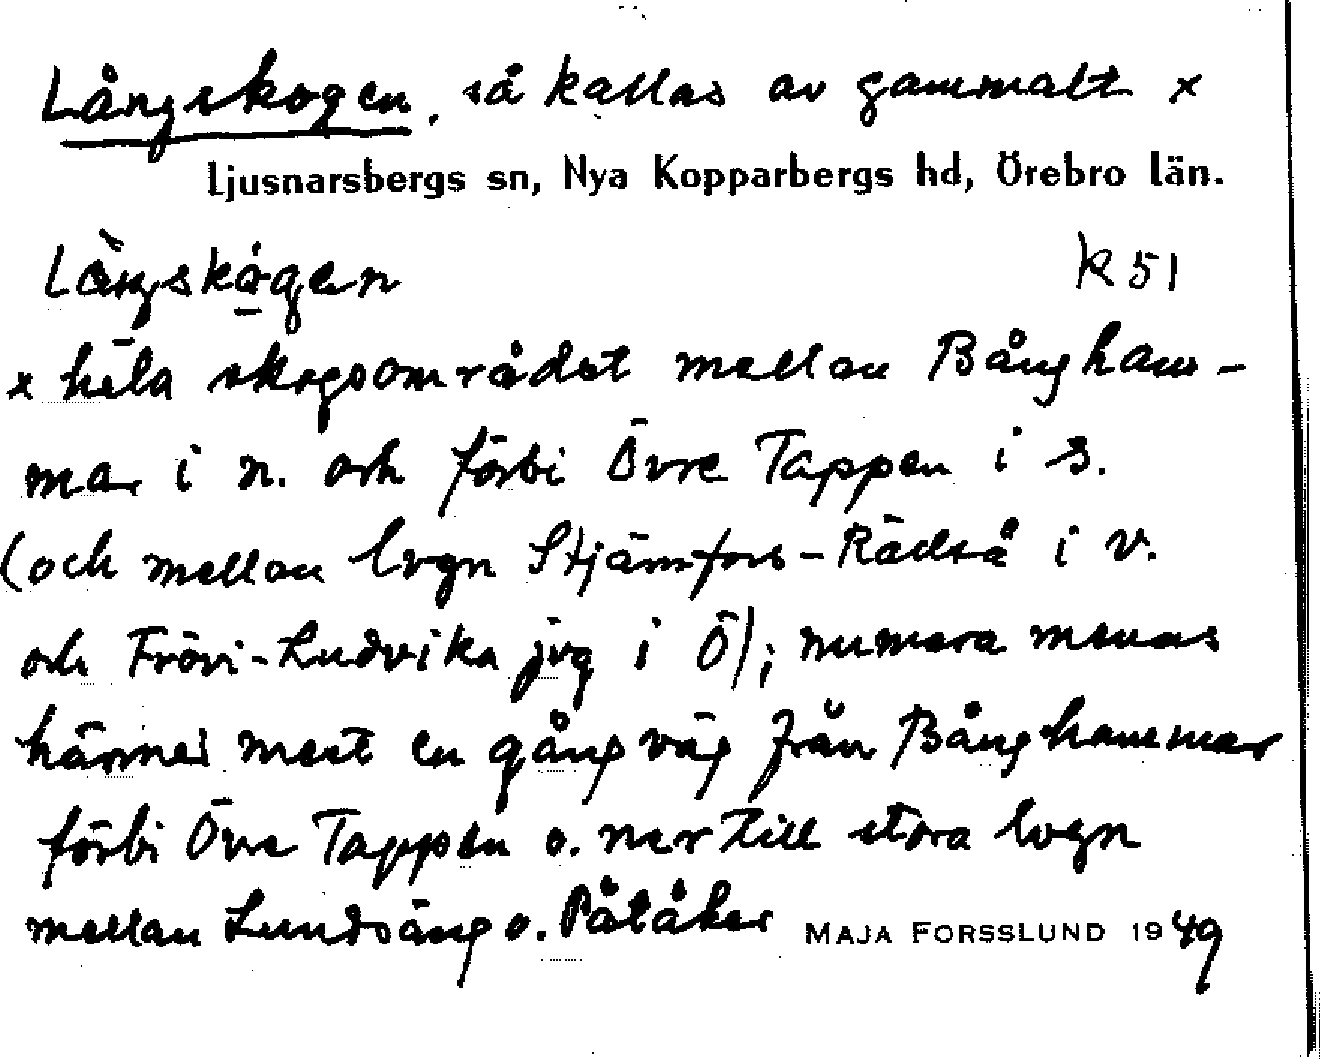 Långskogen, så kallas av gammalt x
Ljusnarsbergs sn, Nya Kopparbergs hd, Örebro län.
Långskogen K 51
x hela skogsområdet mellan Bångham-
mar i n. och förbi Övre Tappen i s.
(och mellan lvgn Stjärnfors-Rädså i v.
och Frövi-Ludvika jvg i Ö); numera menas
härmed mest en gångväg från Bånghammar
förbi Övre Tappen o. ner till stora lvgn
mellan Lundsäng o. Påtåker MAJA FORSSLUND 1949